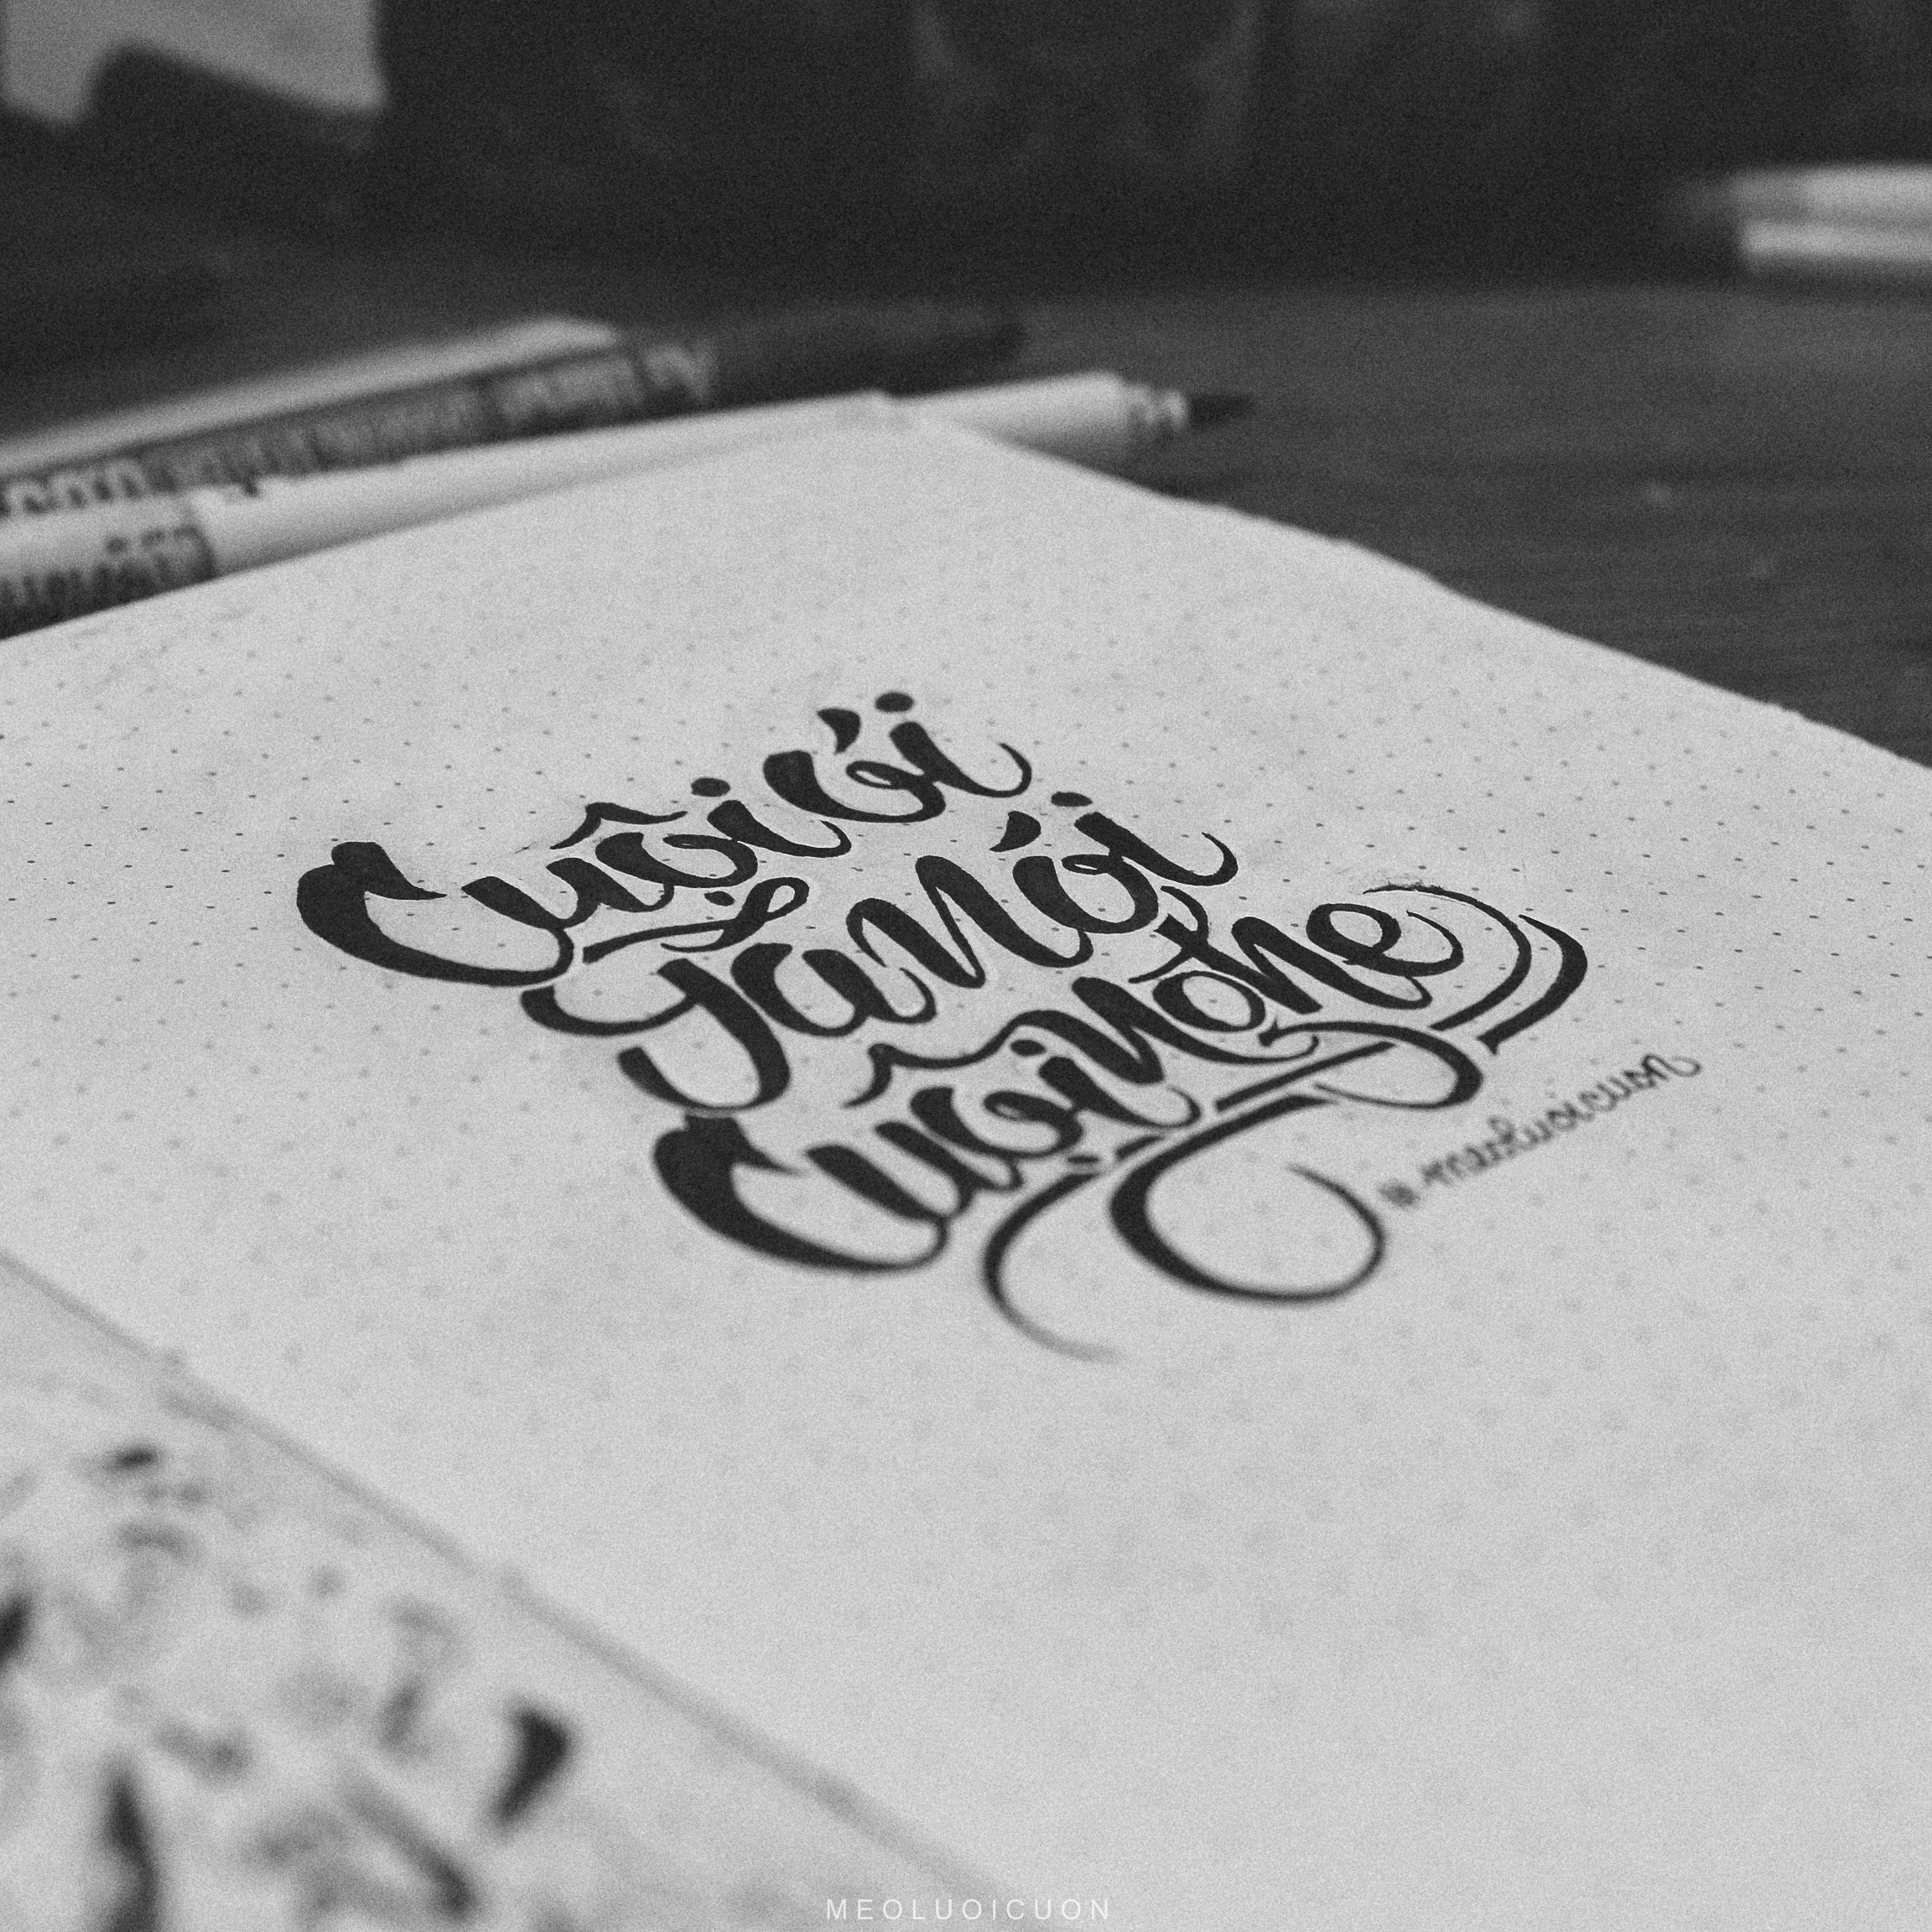 Cuội ơi
Ta nói
Cuội nghe
meoluoicuon
MEOLUOICUON